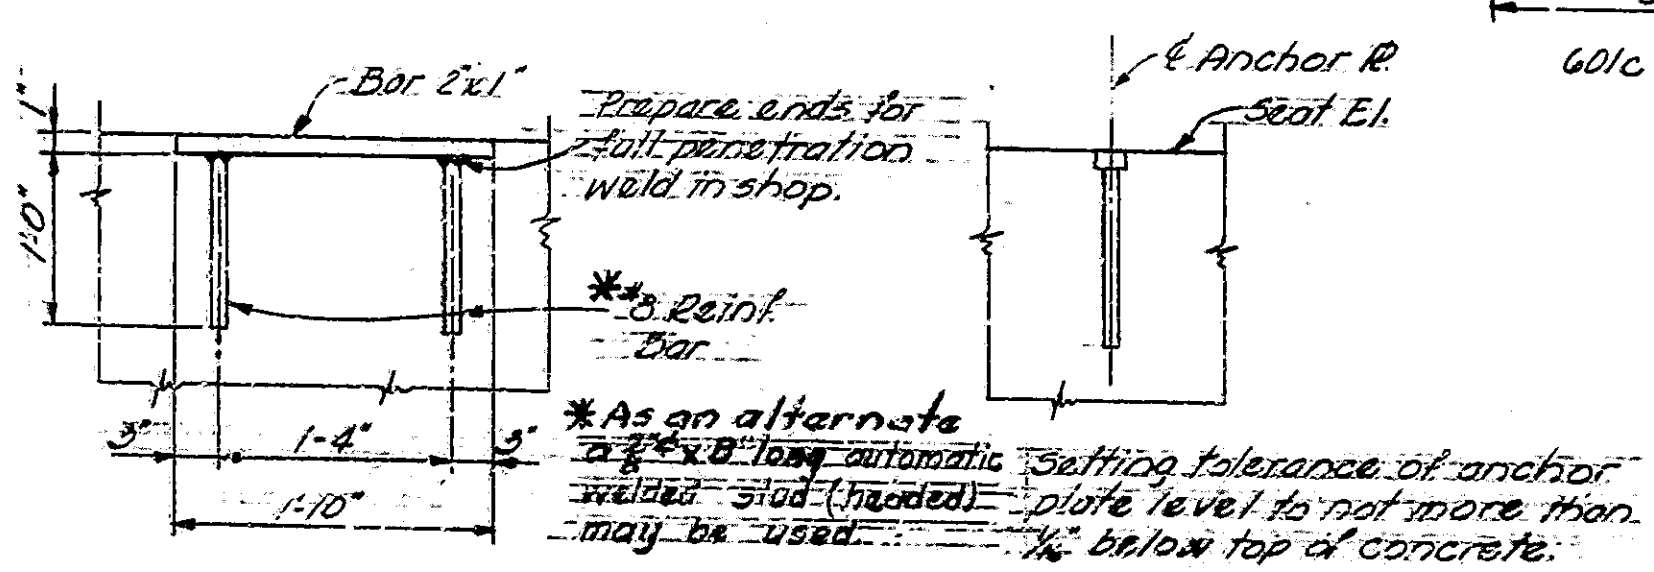 Bar 2"x1"
Prepare ends for
full penetration
weld in shop.
1"
1'-0"
#8 Reinf.
Bar
3"
1'-4"
3"
1'-10"
*As an alternate
x 8" long automatic
welded stud (headed)
may be used.
℄ Anchor ℞.
Seat El.
601c
Setting tolerance of anchor
plate level to not more than
1/16" below top of concrete.